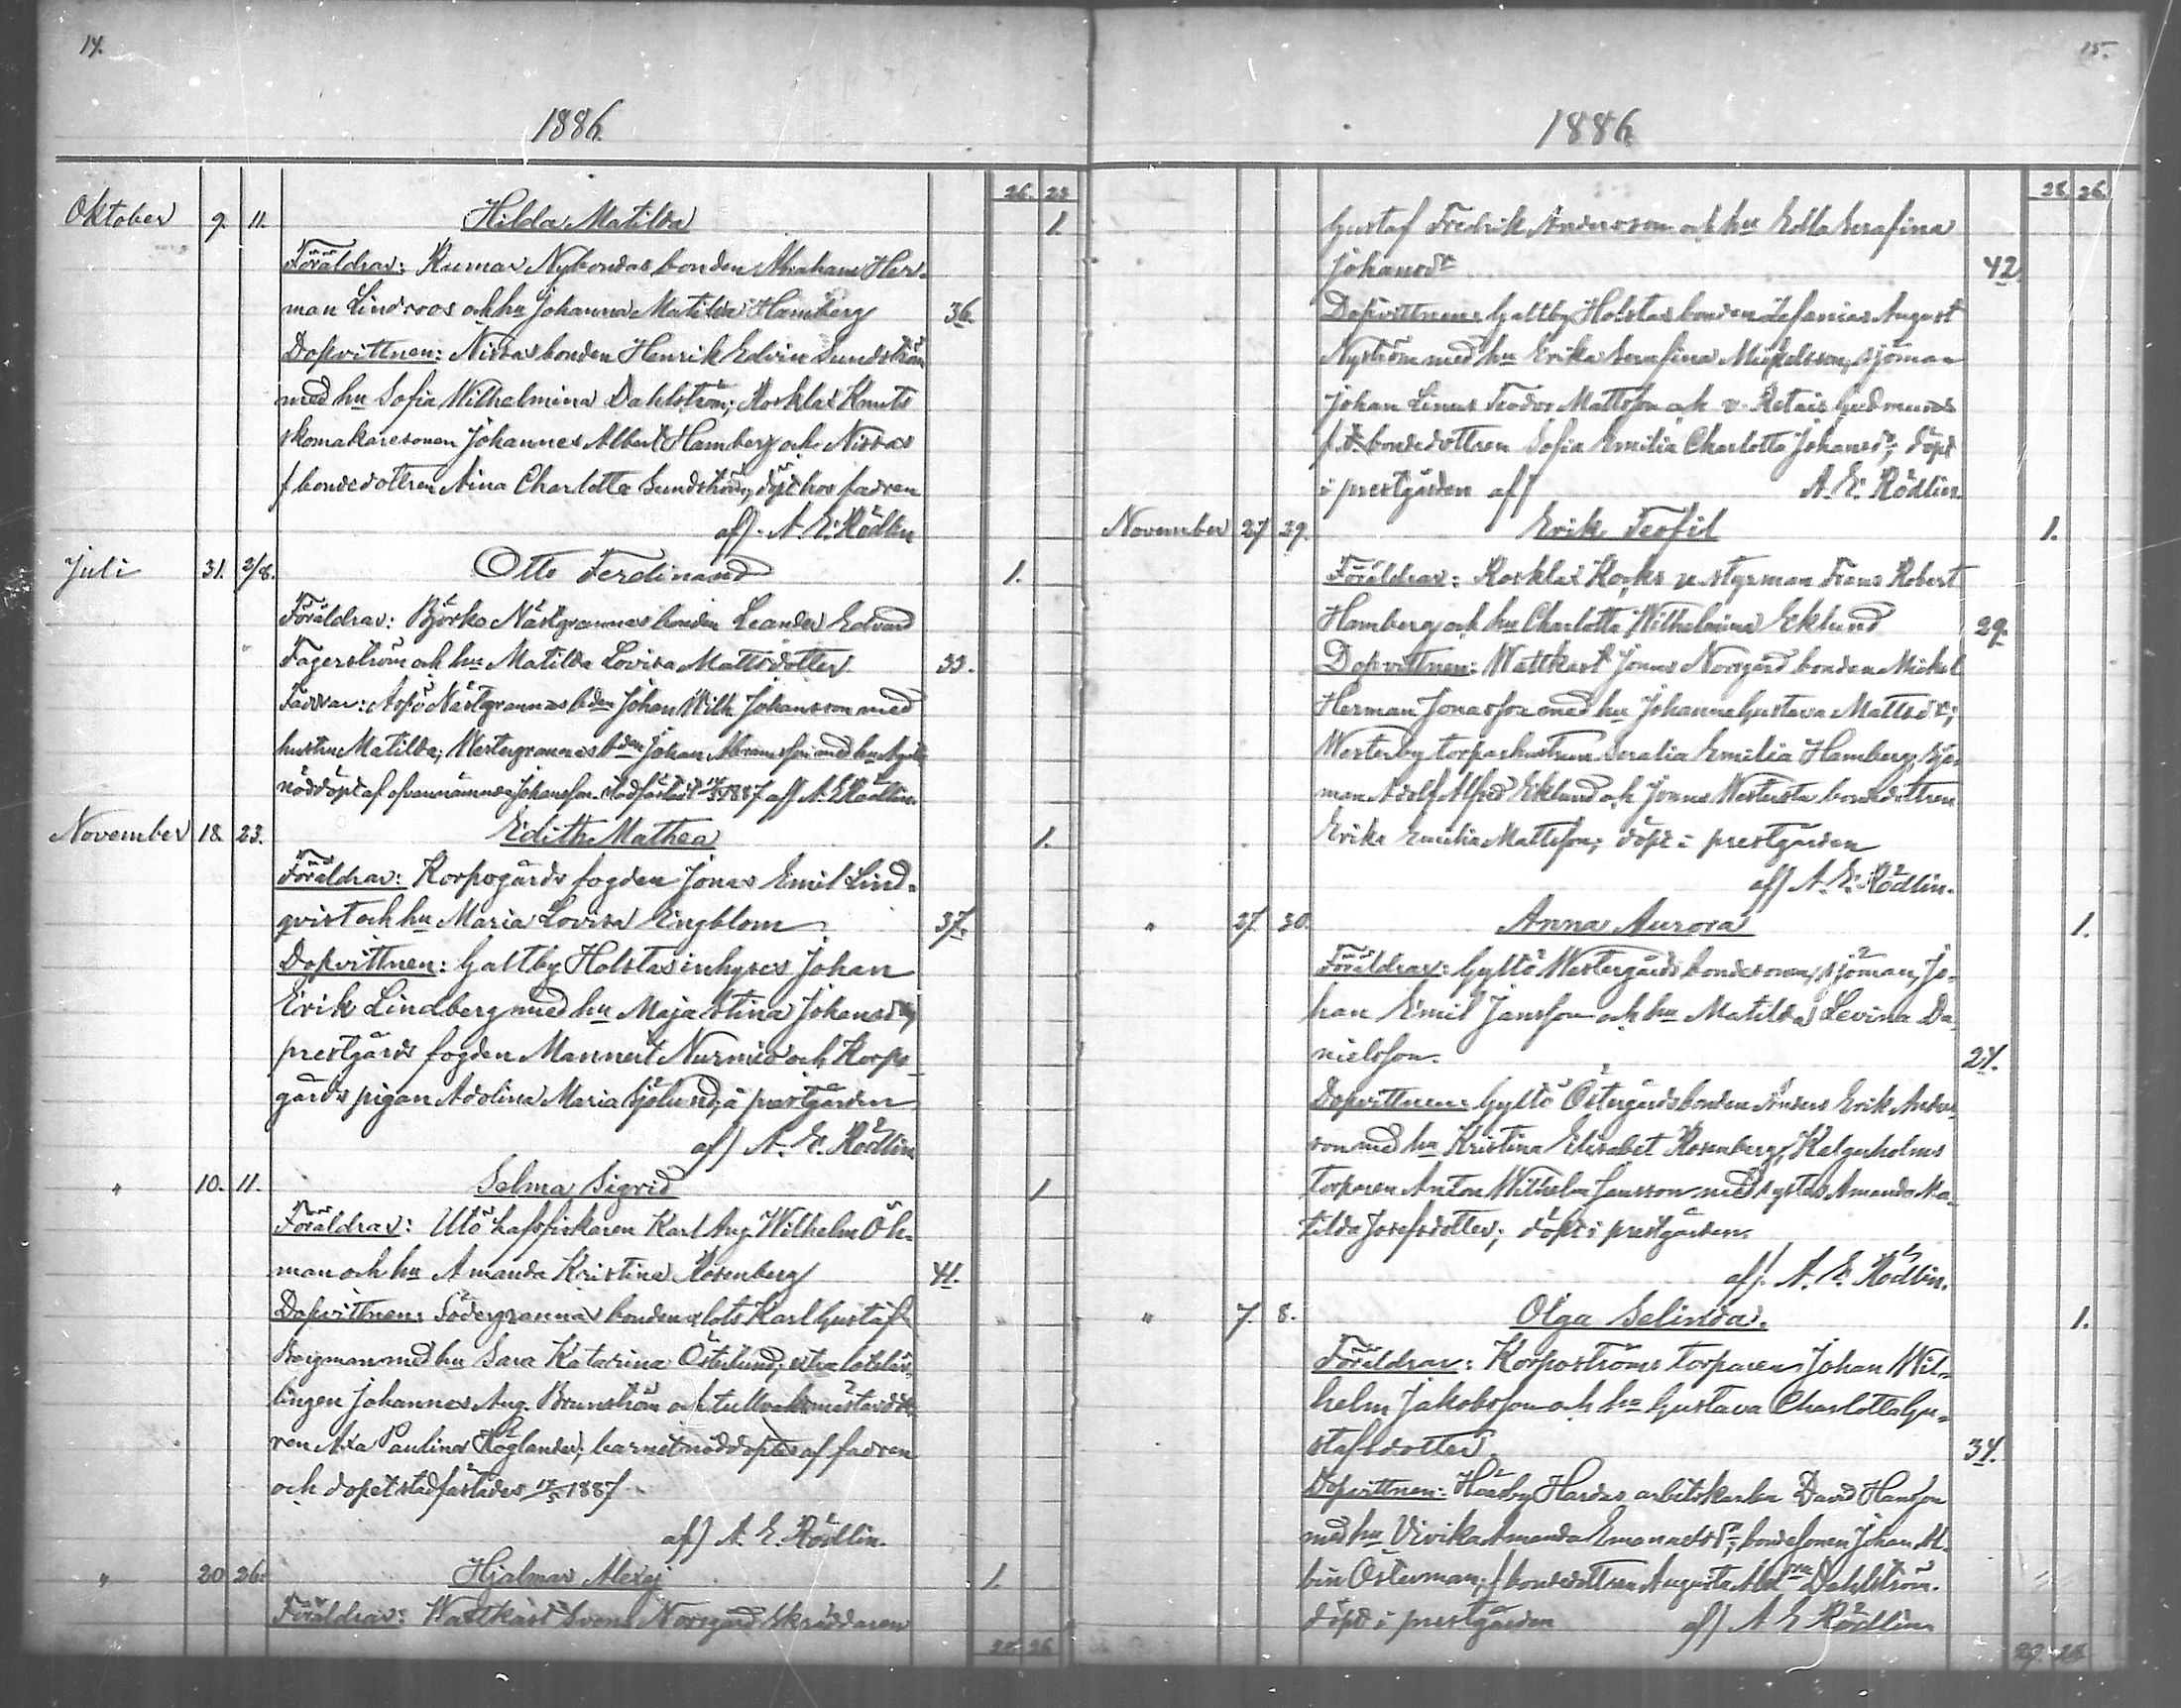 14.
1886.
26. 23
Oktober 9. 11. Hilda Matilda 1.
Föräldrar: Rumar Nybondas bonden Abraham Her-
man Lindroos och hu Johanna Matilda Hamberg 36.
Dopvittnen: Nissas bonden Henrik Edvin Sundström
med hu Sofia Wilhelmina Dahlström; Rosklax Knuts
skomakaresonen Johannes Albert Hamberg och Nissas
f bondedottren Aina Charlotta Sundström, döpt hos fadren
af). A. E. Rödlin
Juli 31. 2/8. Otto Ferdinand 1.
Föräldrar: Björko Nästgrannas bonden Leander Edvard
Fagerström och hu Matilda Lovisa Mattsdotter 33.
Faddrar: Aspö Nästgrannas bden Johan Wilh Johansson med
hustru Matilda; Westergrannas bden Johan Abramsson med hu
nöddöpt af ofvannämnde Johansson. 1887 af) A. E. Rödlin
November 18. 23. Edith Mathea 1.
Föräldrar: Korpogårds fogden Jonas Emil Lind-
qvist och hu Maria Lovisa Engblom 37.
Dopvittnen: Galtby Holstas inhyses Johan
Erik Lindberg med hu Maja Stina Johansdr
prestgårds fogden Mannert Nurmio och Korpo-
gårds pigan Adolina Maria Sjölund, å prestgården
af) A. E. Rödlin
" 10. 11. Selma Sigrid 1
Föräldrar: Utö hafsfiskaren Karl Aug. Wilhelm Öh-
man och hu Amanda Kristina Rosenberg 41.
Dopvittnen: Södergrannas bonden lots Karl Gustaf
Bergman med hu Sara Katarina Österlund; extra lotslär-
lingen Johannes Aug. Brunström och tullvaktmästaredott-
ren Paulina Höglander; barnet nöddöptes af fadren
och dopet stadfästades 1887
af) A. E. Rödlin.
" 20 26. Hjalmar Alexej 1.
Föräldrar: Wattkast Svens Norrgård skräddaren
26
15.
1886.
28. 26.
Gustaf Fredrik Andersson och hu Edla Serafina
Johansdr 42.
Dopvittnen: Galtby Holstas bonden Zefanias August
Nyström med hu Erika Serafina Mickelsson, sjöman
Johan Linus Teodor Mattsson och v. Retais Gudmunds
f. d. bondedottren Sofia Emilia Charlotta Johansdr; döpt
i prestgården af) A. E. Rödlin
November 27 29. Erik Teofil 1.
Föräldrar: Rosklax Kocks v. styrman Frans Robert
Hamberg och hu Charlotta Wilhelmina Eklund 29.
Dopvittnen: Wattkast Jonas Norrgård bonden Mickel
Herman Jonasson med hu Johanna Gustava Mattsdr;
Westerby torparehustrun Emilia Hamberg, sjö-
man Adolf Alfred Eklund och Jonas bondedottren
Erika Emilia Mattsson; döpt i prestgården
af) A. E. Rödlin.
" 27. 30. Anna Aurora 1.
Föräldrar: Gyltö Westergårds bondesonen, sjöman, Jo-
han Emil Jansson och hu Matilda Levina Da-
nielsson. 27.
Dopvittnen: Gyltö Östergårds bonden Anders Erik Anders-
son med hu Kristina Elisabet Rosenberg, Kalgerholms
torparen Anton Wilhelm Jansson med syster Amanda Ma-
tilda Josefsdotter; döpt i prestgården.
af). A. E. Rödlin.
" 7. 8. Olga Selinda. 1.
Föräldrar: Korpoströms torparen Johan Wil-
helm Jakobsson och hu Gustava Charlotta Gu-
stafsdotter. 34.
Dopvittnen: Hardas arbetskarlen David Hansson
med hu Vivika Amanda Emanuelsdr; bondesonen Johan Al-
bin Österman; f bondedottren Augusta Dahlström.
döpt i prestgården af) A E Rödlin
29. 28